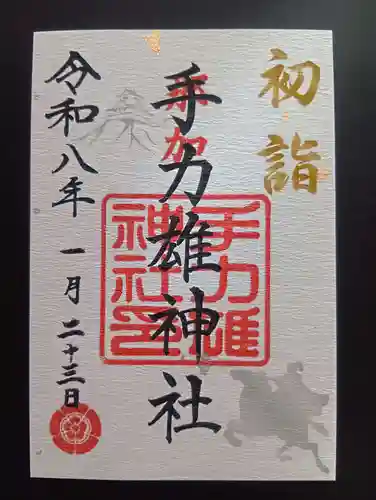 初詣
手力雄神社
加
手力雄
神社印
令和八年
一月
二十三日